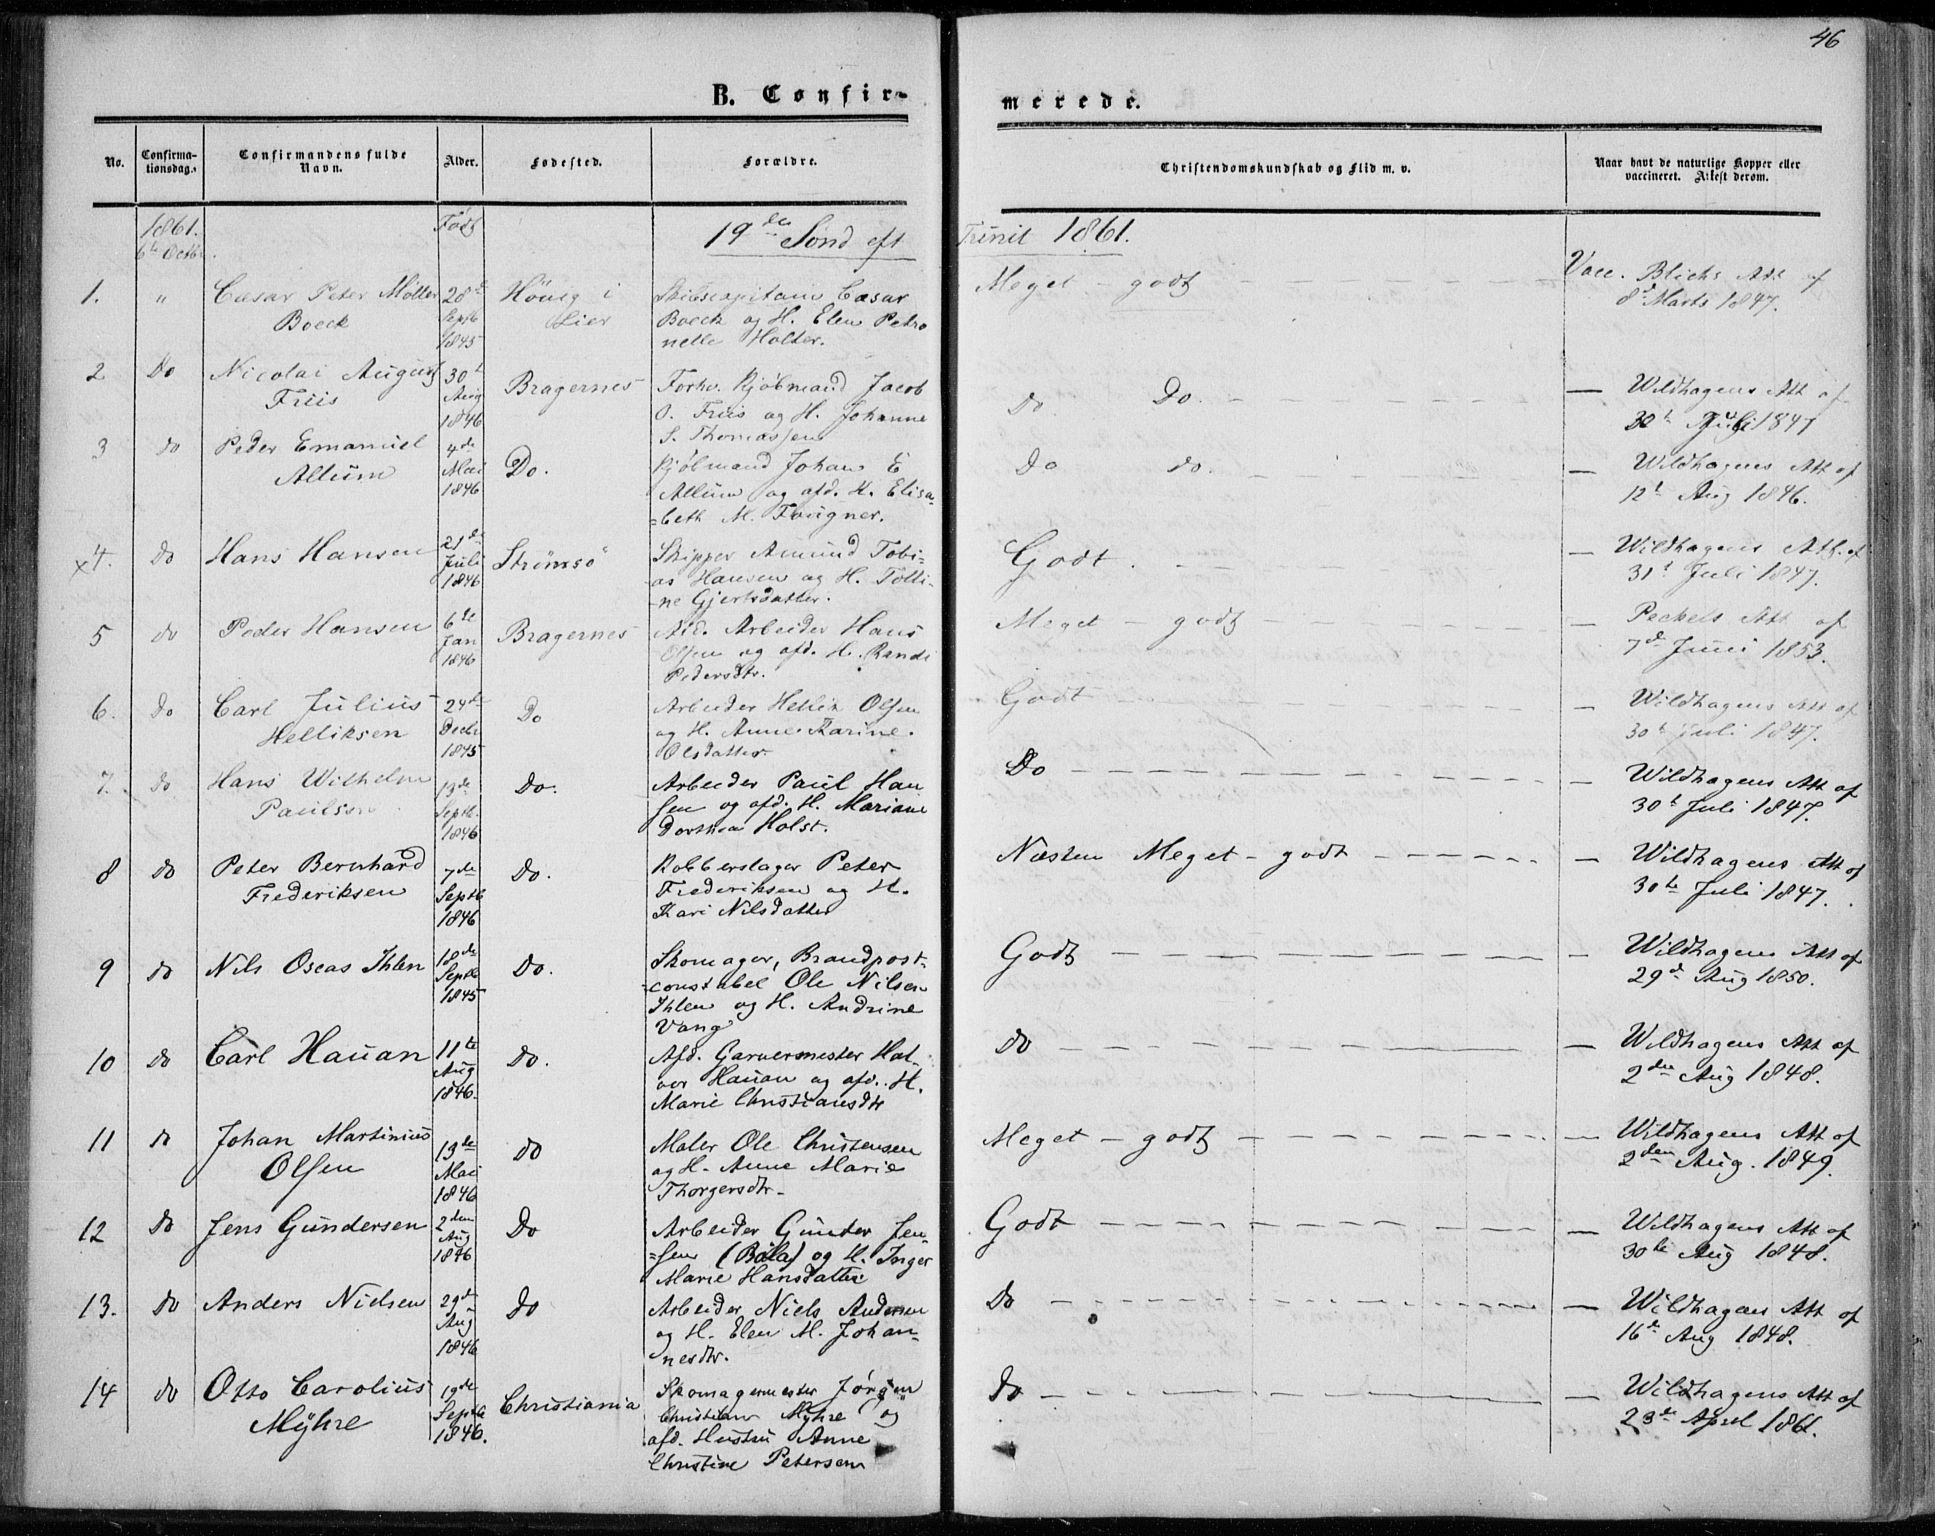 46
B. Confirmerede.
No. | Confirmationsdag. | Confirmandens fulde Navn. | Alder. | Fødested. | Forældre. | Christendomskundskab og Flid m. v. | Naar havt de naturlige Kopper eller vaccineret. Attest derom.
1861. 6te Octb. | Født | 19de Sönd eft Trinit 1861.
1. | " | Cæsar Peter Møller Boeck | 28de Septb 1845 | Hönig i Lier | Skibscapitain Cæsar Boeck og H. Elen Petronelle Holter. | Meget - godt | Vacc. Blichs Att af 8d Marts 1847.
2 | Do | Nicolai August Friis | 30t Aug 1846 | Bragernes | Forhv. Kjøbmand Jacob O. Friis og H. Johanne S. Thomassen | Do Do. | — Wildhagens Att af 30t Juli 1847
3 | do | Peder Emanuel Allum | 4de Mai 1846 | Do. | Kjøbmand Johan E Allum og afd. H. Elisabeth M. Fougner. | Do do. | — Wildhagens Att af 12t Aug 1846.
x4. | do | Hans Hansen | 21de Juli 1846 | Strömsö | Skipper Amund Tobias Hansen og H. Toltine Gjertsdatter. | Godt. | — Wildhagens Att. af 31t Juli 1847.
5 | do | Peder Hansen | 6te Jan 1846 | Bragernes | Afd. Arbeider Hans Olsen og afd. H. Randi Pedersdtr. | Meget - godt | — Peckels Att af 7d Juni 1853.
6. | do | Carl Julius Helliksen | 24de Decbr 1845 | Do | Arbeider Hellik Olsen og H. Anne Karine Olsdatter | Godt | — Wildhagens Att af 30t Juli 1847.
7. | do | Hans Wilhelm Paulsen | 13de Septb. 1846 | Do. | Arbeider Paul Hansen og afd. H. Mariane Dorthea Holst. | Do | — Wildhagens Att af 30t Juli 1847.
8 | do | Peter Bernhard Frederiksen | 7de Septb 1846 | Do. | Kobberslager Peter Frederiksen og H. Kari Nilsdatter | Næsten Meget - godt | — Wildhagens Att af 30te Juli 1847.
9 | do | Nils Oscas Ihlen | 18de Septb 1845 | Do. | Skomager, Brandpostconstabel Ole Nilsen Ihlen og H. Andrine Vang | Godt | — Wildhagens Att af 29d Aug 1850.
10 | do | Carl Hauan | 11te Aug 1846. | Do. | Afd. Garvermester Halvor Hauan og afd. H. Marie Christiansdtr | do | — Wildhagens Att af 2den Aug 1848.
11 | do | Johan Martinius Olsen | 13de Mai 1846 | do | Maler Ole Christensen og H. Anne Marie Thorgersdtr. | Meget - godt | — Wildhagens Att af 2den Aug. 1849.
12 | do | Jens Gundersen | 2den Aug 1846 | Do | Arbeider Gunder Jensen (Böla) og H. Inger Marie Hansdatter | Godt | — Wildhagens Att af 30te Aug 1848.
13. | do | Anders Nielsen | 29d Aug 1846 | do | Arbeider Niels Andersen og H. Elen M. Johannesdtr. | Do | — Wildhagens Att af 16de Aug 1848.
14 | do | Otto Carolius Myhre | 19de Septb 1846. | Christiania | Skomagermester Jørgen Christian Myhre og afd. Hustru Anne Christine Petersen | Do | — Wildhagens Att af 23de April 1861.